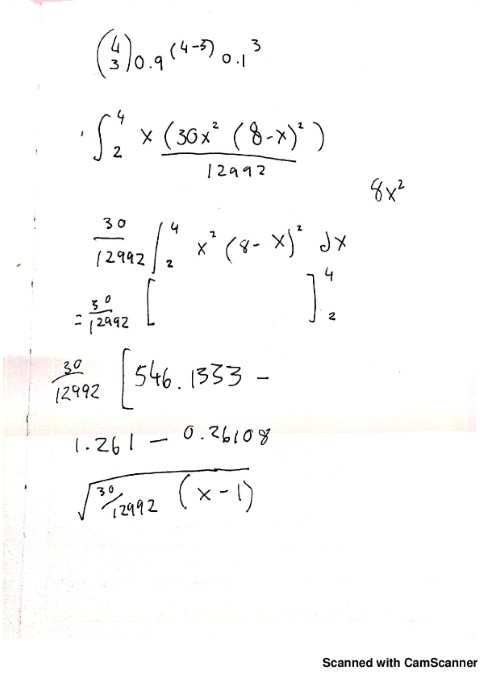 (4 3) 0.9^(4-3) 0.1^3
∫_2^4 x (30x² (8-x)²) / 12992
8x²
30/12992 ∫_2^4 x² (8-x)² dx
= 30/12992 [ ]_2^4
30/12992 [546.1333 -
1.261 - 0.26108
√(30/12992 (x-1))
Scanned with CamScanner